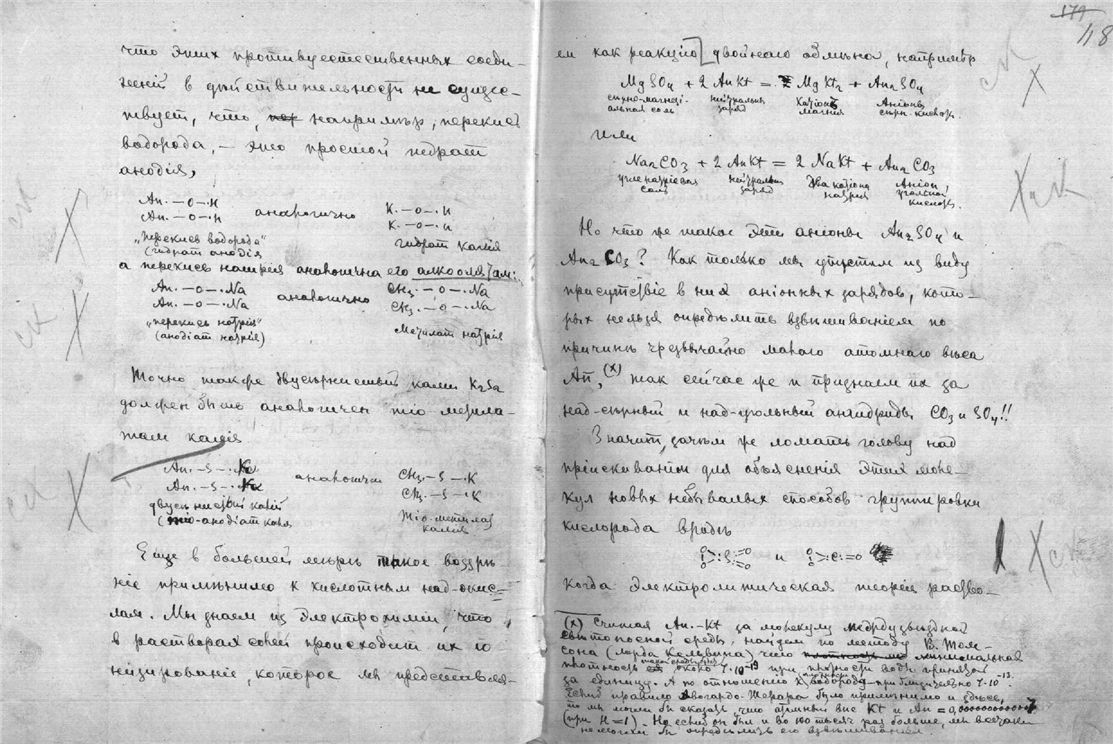 что этих противуестественных соеди-
неній в дѣйствительности не сущест-
твует, что, напримѣр, перекись
водорода, – это простой гидрат
анодія,
An. – O – . H
An. – O – . H
аналогично
K. – O – . H
K. – O – . H
„перекись водорода"
(гидрат анодія
гидрат калія
а перекись натрія аналогична его алкоолятам:
An. – O – . Na
An. – O – . Na
аналогично
CH3. – O – . Na
CH3. – O – . Na
„перекись натрія"
(анодіат натрія)
Метилат натрія
Точно также двусѣрнистый калий K2S2
должен быть аналогичен тіо-метила-
там калія
An. – S – . K
An. – S – . K
аналогичн
CH3. – S – . K
CH3. – S – . K
калій
(тіо-анодіат калія
Тіо-метилат
калія
Еще в большей мѣрѣ такое воззрѣ-
ніе примѣнимо к кислотным над-окис-
лам. Мы знаем из Электрохиміи, что
в растворах солей происходит их іо-
низированіе, которое мы представляя-
174
118
ем как реакцію двойного обмѣна, напримѣр
MgSO4 + 2 AnKt = MgKt2 + An2SO4
сѣрно-магнезі-
альная соль
нейтральн.
заряд
Катіон
магнія
Аніонъ
сѣрн. кислоты.
или
Na2CO3 + 2 AnKt = 2 NaKt + An2CO3
угленатріевая
соль
нейтральн.
заряд
Два катіона
натрія
Аніон
угольной
кислоты.
Но что же такое эти аніоны An2SO4 и
An2CO3? Как только мы упустим из виду
присутствіе в них аніонных зарядов, кото-
рых нельзя опредѣлить взвѣшиваніем по
причинѣ чрезвычайно малого атомнаго вѣса
An, (x) так сейчас же и признаем их за
над-сѣрный и над-угольный ангидриды CO3 и SO4!!
Значит, зачѣм же ломать голову над
пріисканіем для объясненія этих моле-
кул новых небывалых способов группировки
кислорода вродѣ
и
Когда Электролитическая теорія раство-
(x) Считая An. – Kt за молекулу междузвѣздной
свѣтоносной среды, найдем по методу В. Том-
сона (лорда Кельвина) его минимальная
плотность около 7·10⁻¹⁹ при плотности воды принятой
за единицу. А по отношенію к водороду приблизительно 7·10⁻¹³.
правило Авогадро-Жерара было примѣнимо и здѣсь,
то мы могли бы сказать, что атомный вѣс Kt и An = 0,
(при H = 1). Но если он был и во 100 тысяч раз больше, мы все-таки
не могли бы опредѣлить его взвѣшиванием.